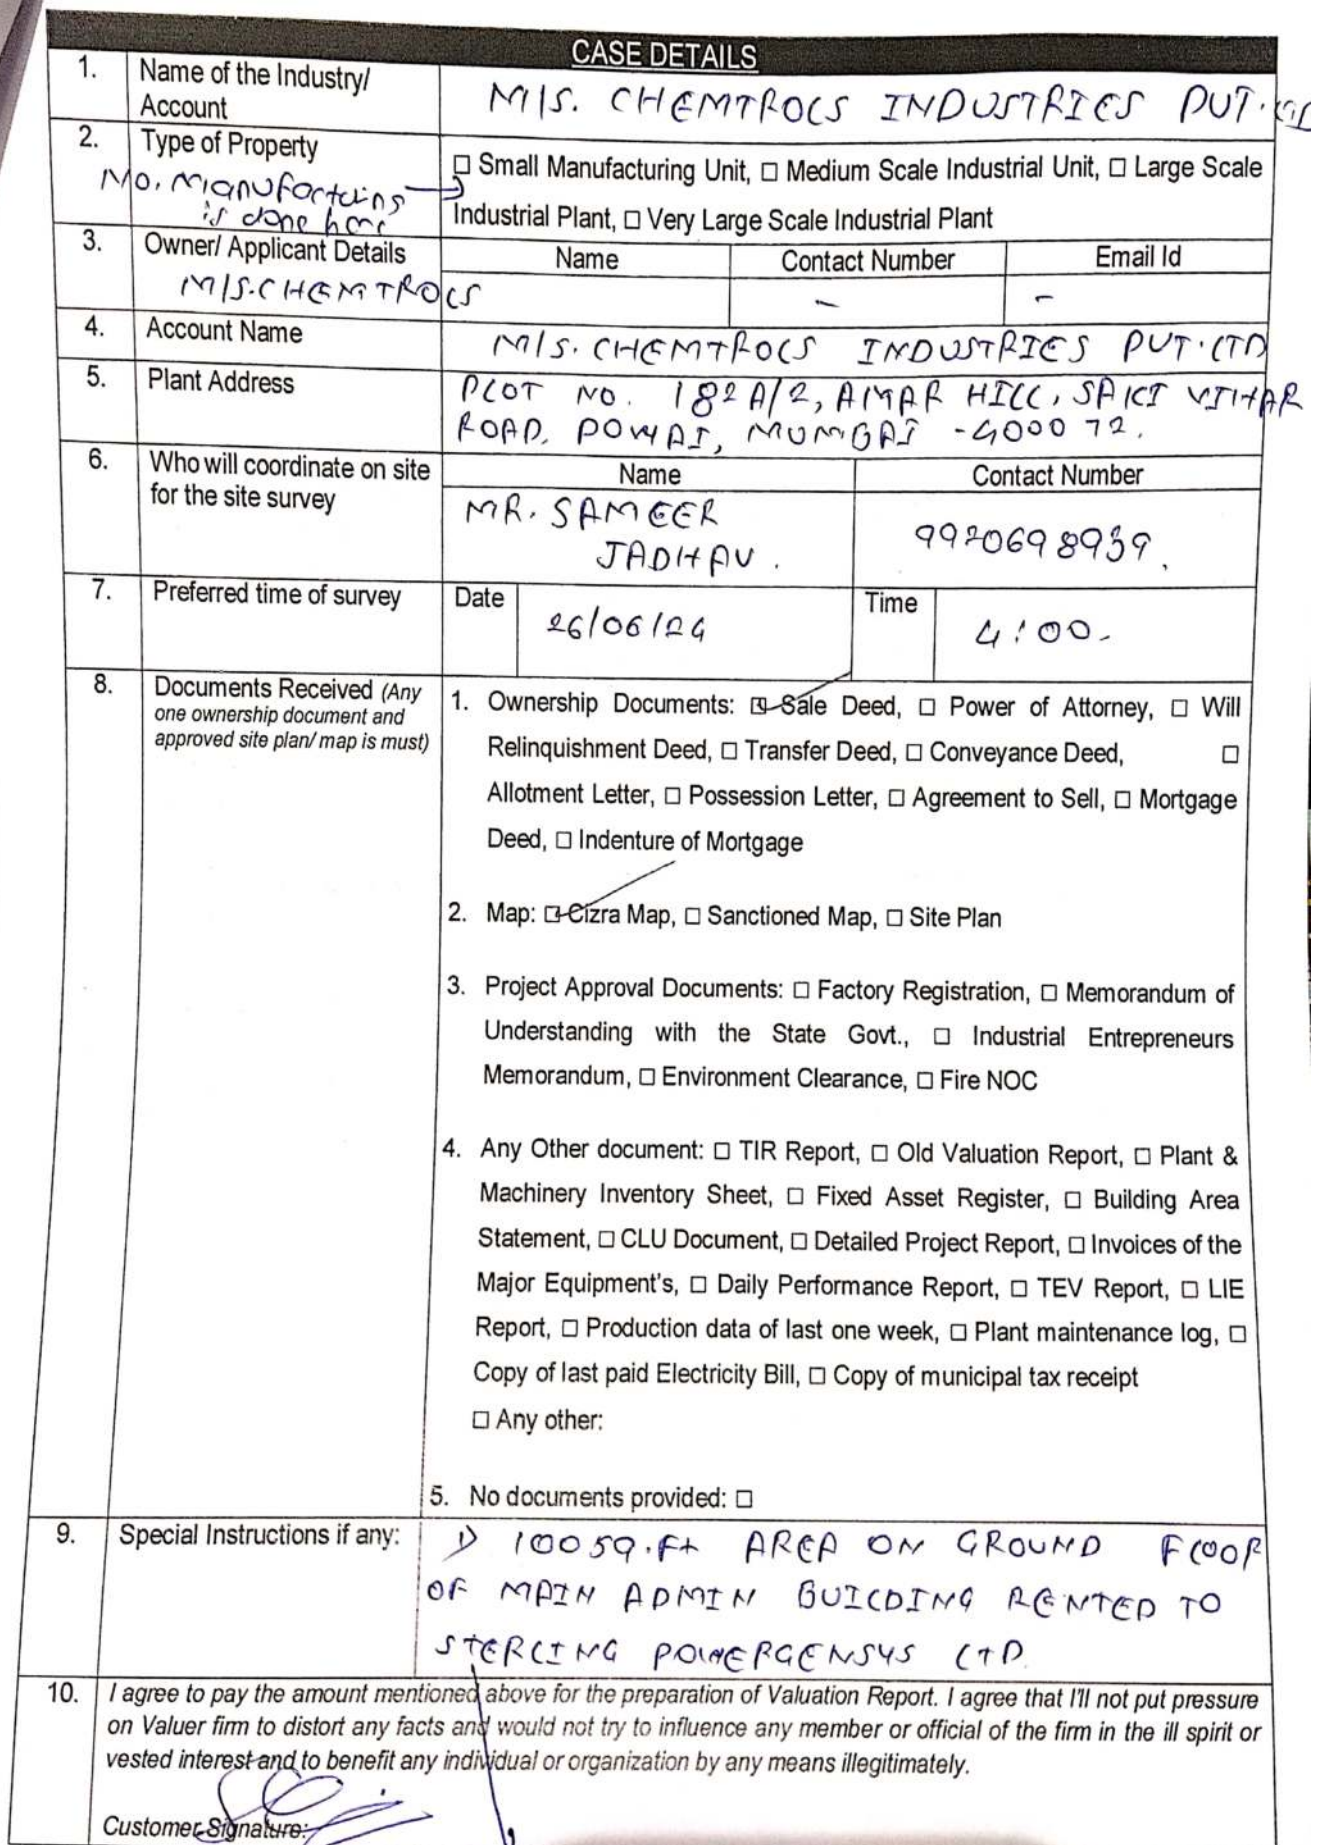 CASE DETAILS
1. Name of the Industry/ Account
M/S. CHEMTROLS INDUSTRIES PVT.
2. Type of Property
No. Manufacturing is done here
☐ Small Manufacturing Unit, ☐ Medium Scale Industrial Unit, ☐ Large Scale
Industrial Plant, ☐ Very Large Scale Industrial Plant
3. Owner/ Applicant Details
M/S.CHEMTROLS
Name Contact Number Email Id
- -
4. Account Name
M/S. CHEMTROLS INDUSTRIES PVT.LTD
5. Plant Address
PLOT NO. 182A/2, AMAR HILL, SAKI VIHAR
ROAD, POWAI, MUMBAI -400072.
6. Who will coordinate on site
for the site survey
Name Contact Number
MR. SAMEER
JADHAV.
9920698939.
7. Preferred time of survey
Date 26/06/24 Time 4:00-
8. Documents Received (Any
one ownership document and
approved site plan/ map is must)
1. Ownership Documents: ☑ Sale Deed, ☐ Power of Attorney, ☐ Will
Relinquishment Deed, ☐ Transfer Deed, ☐ Conveyance Deed, ☐
Allotment Letter, ☐ Possession Letter, ☐ Agreement to Sell, ☐ Mortgage
Deed, ☐ Indenture of Mortgage
2. Map: ☑ Cizra Map, ☐ Sanctioned Map, ☐ Site Plan
3. Project Approval Documents: ☐ Factory Registration, ☐ Memorandum of
Understanding with the State Govt., ☐ Industrial Entrepreneurs
Memorandum, ☐ Environment Clearance, ☐ Fire NOC
4. Any Other document: ☐ TIR Report, ☐ Old Valuation Report, ☐ Plant &
Machinery Inventory Sheet, ☐ Fixed Asset Register, ☐ Building Area
Statement, ☐ CLU Document, ☐ Detailed Project Report, ☐ Invoices of the
Major Equipment's, ☐ Daily Performance Report, ☐ TEV Report, ☐ LIE
Report, ☐ Production data of last one week, ☐ Plant maintenance log, ☐
Copy of last paid Electricity Bill, ☐ Copy of municipal tax receipt
☐ Any other:
5. No documents provided: ☐
9. Special Instructions if any:
1) 10059.Ft AREA ON GROUND FLOOR
OF MAIN ADMIN BUILDING RENTED TO
STERLING POWERGENSYS LTD
10. I agree to pay the amount mentioned above for the preparation of Valuation Report. I agree that I'll not put pressure
on Valuer firm to distort any facts and would not try to influence any member or official of the firm in the ill spirit or
vested interest and to benefit any individual or organization by any means illegitimately.
Customer Signature: